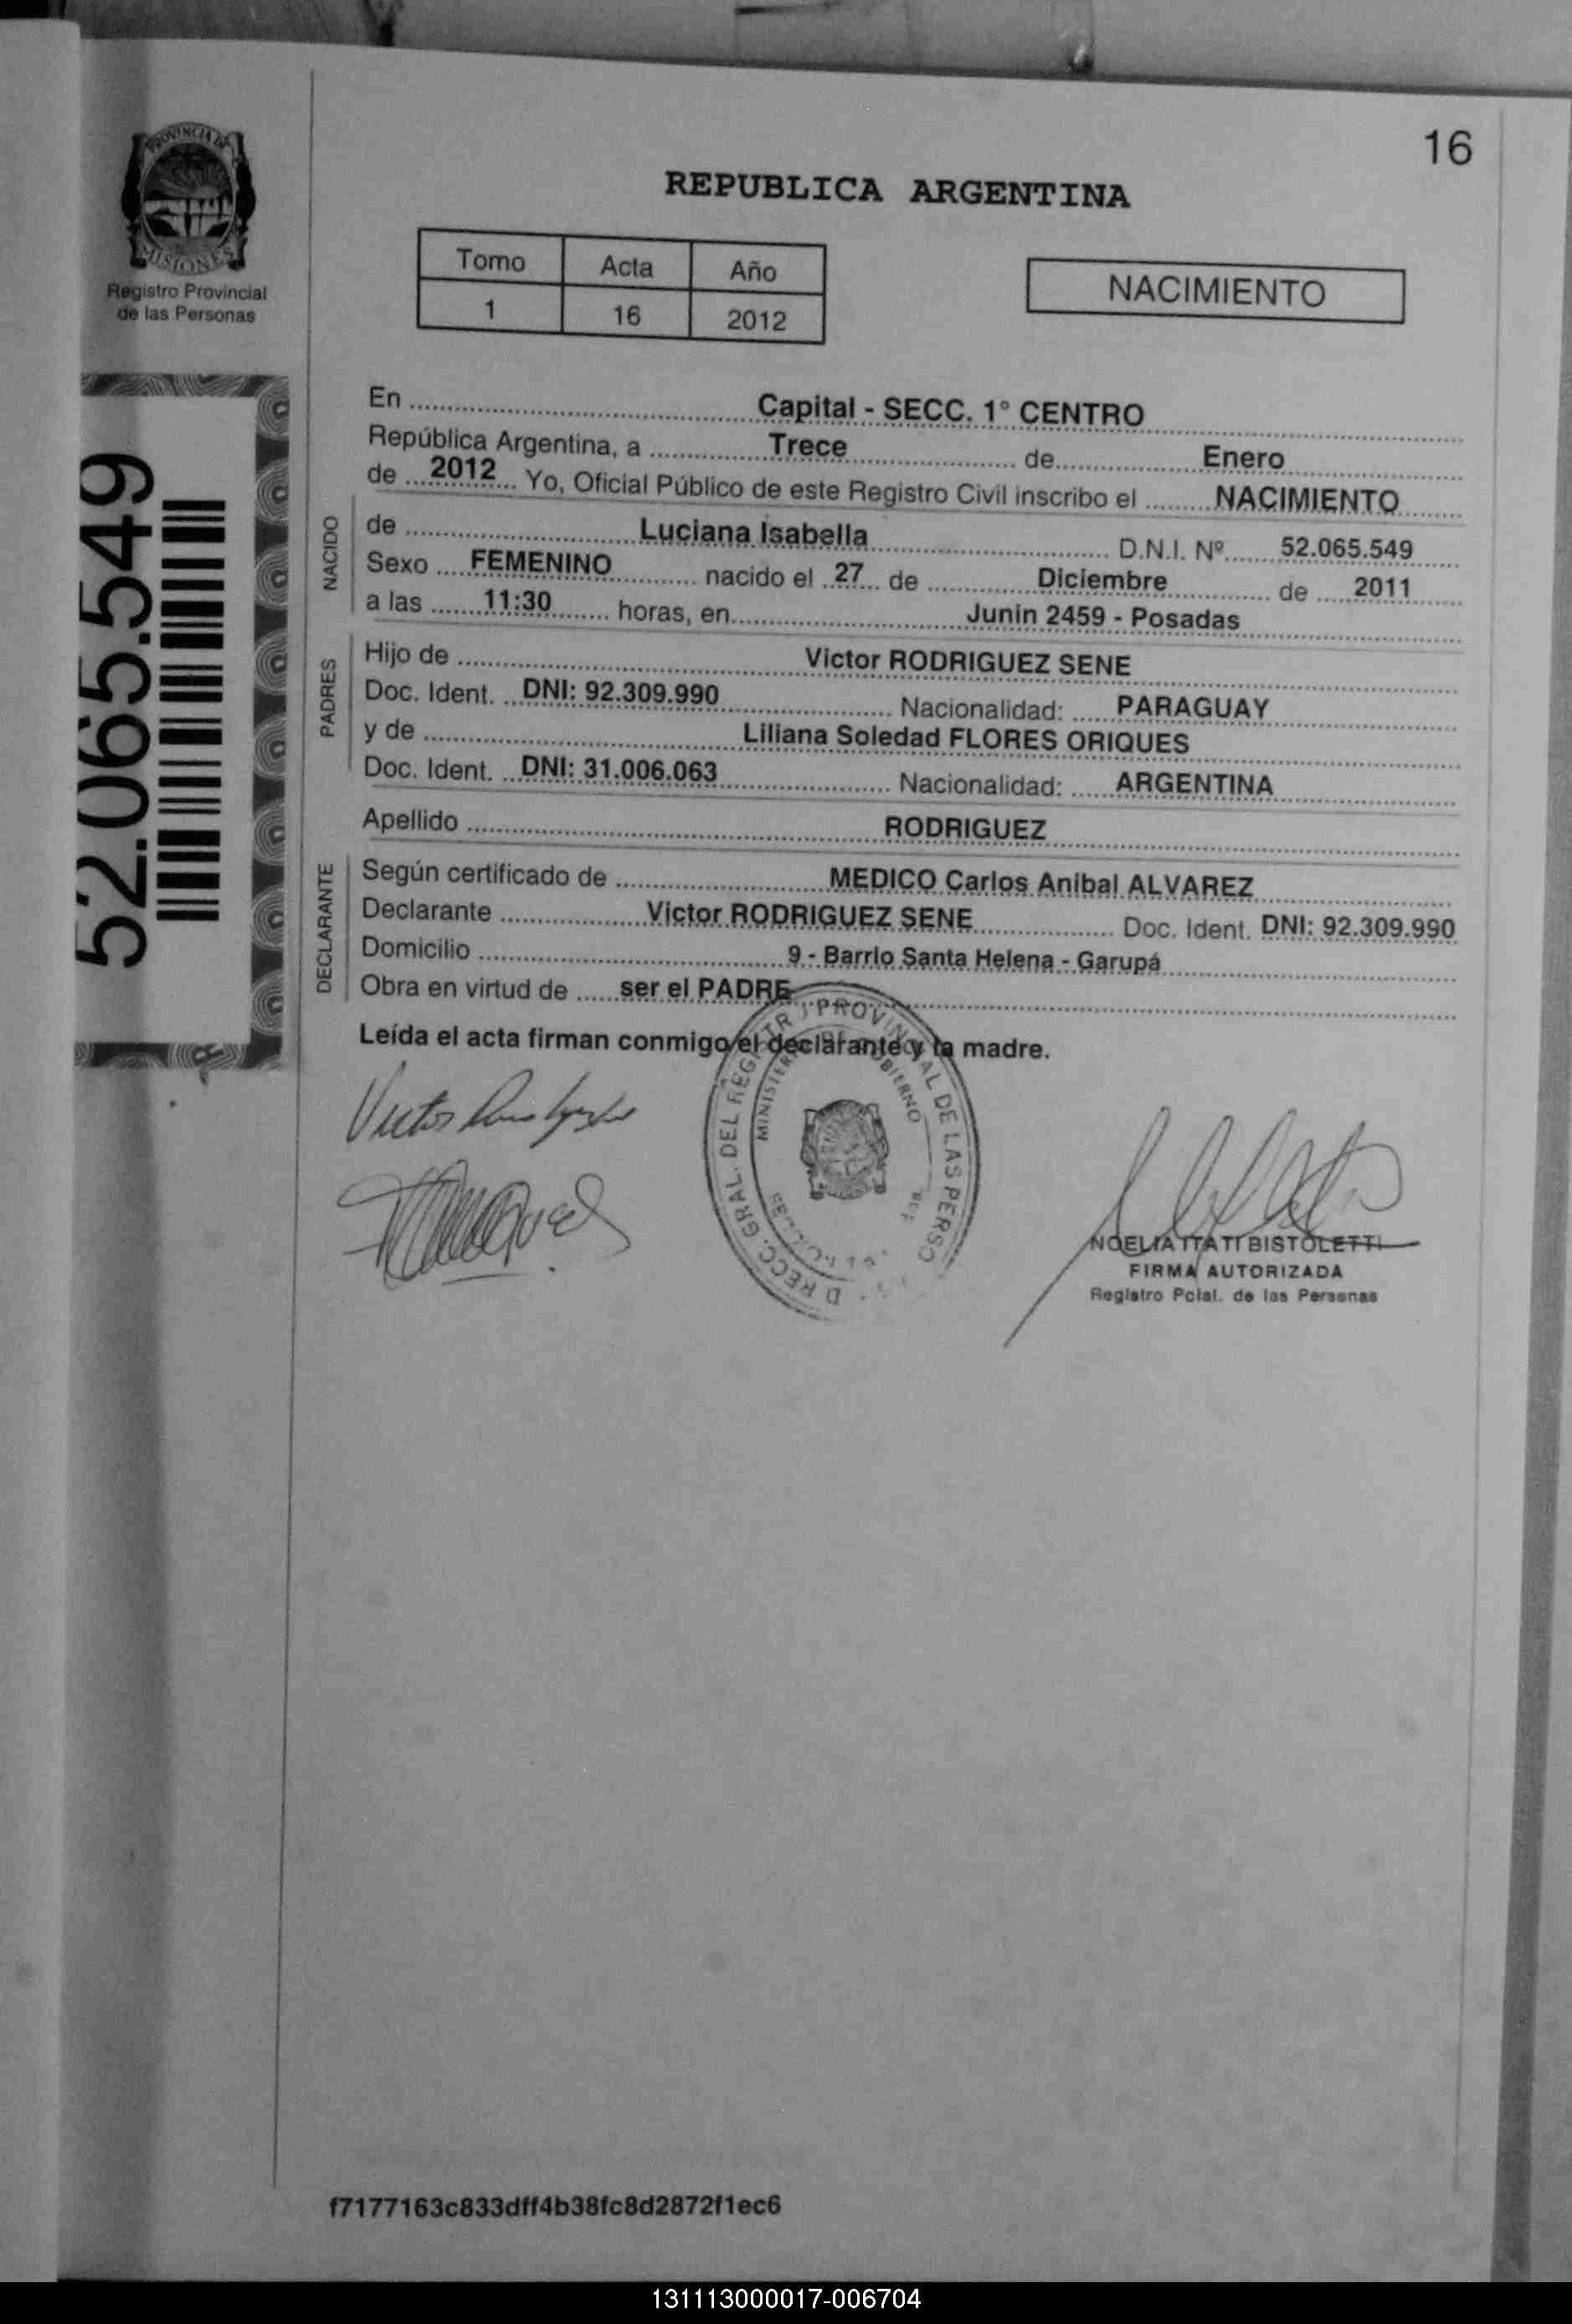 16
PROVINCIA DE
MISIONES
Registro Provincial
de las Personas
REPUBLICA ARGENTINA
Tomo Acta Año
1 16 2012
NACIMIENTO
52.065.549
En Capital - SECC. 1° CENTRO
República Argentina, a Trece de Enero
de 2012 Yo, Oficial Público de este Registro Civil inscribo el NACIMIENTO
NACIDO
de Luciana Isabella D.N.I. Nº 52.065.549
Sexo FEMENINO nacido el 27 de Diciembre de 2011
a las 11:30 horas, en Junin 2459 - Posadas
PADRES
Hijo de Victor RODRIGUEZ SENE
Doc. Ident. DNI: 92.309.990 Nacionalidad: PARAGUAY
y de Liliana Soledad FLORES ORIQUES
Doc. Ident. DNI: 31.006.063 Nacionalidad: ARGENTINA
Apellido RODRIGUEZ
DECLARANTE
Según certificado de MEDICO Carlos Anibal ALVAREZ
Declarante Victor RODRIGUEZ SENE Doc. Ident. DNI: 92.309.990
Domicilio 9 - Barrio Santa Helena - Garupá
Obra en virtud de ser el PADRE
Leída el acta firman conmigo el declarante y la madre.
Victor
NOELIA ITATI BISTOLETTI
FIRMA AUTORIZADA
Registro Pcial. de las Personas
f7177163c833dff4b38fc8d2872f1ec6
131113000017-006704